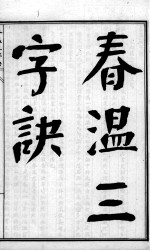 春溫三
字訣